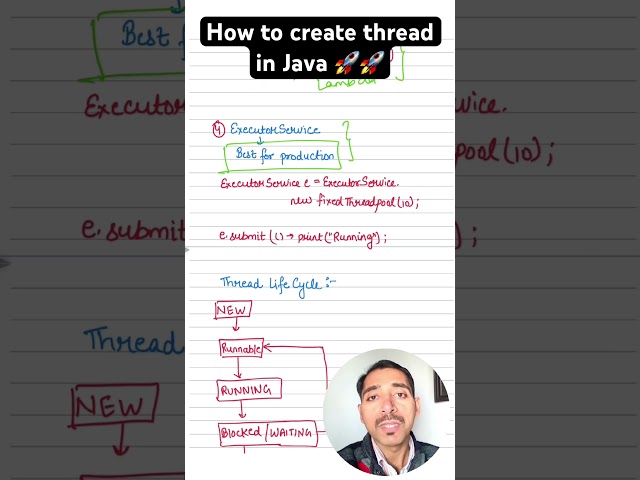 How to create thread
in Java 🚀🚀
Lambda
4 ExecutorService
Best for production
ExecutorService e = ExecutorService.
new fixedThreadpool(10);
e.submit(() → print("Running");
Thread Life Cycle :-
NEW
Runnable
RUNNING
Blocked/WAITING
Best
Execut
vice.
pool(10);
Thread
NEW